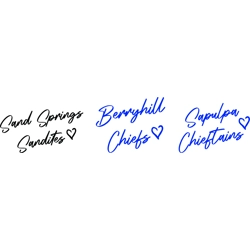 Sand Springs
Sandites
Berryhill
Chiefs
Sapulpa
Chieftains